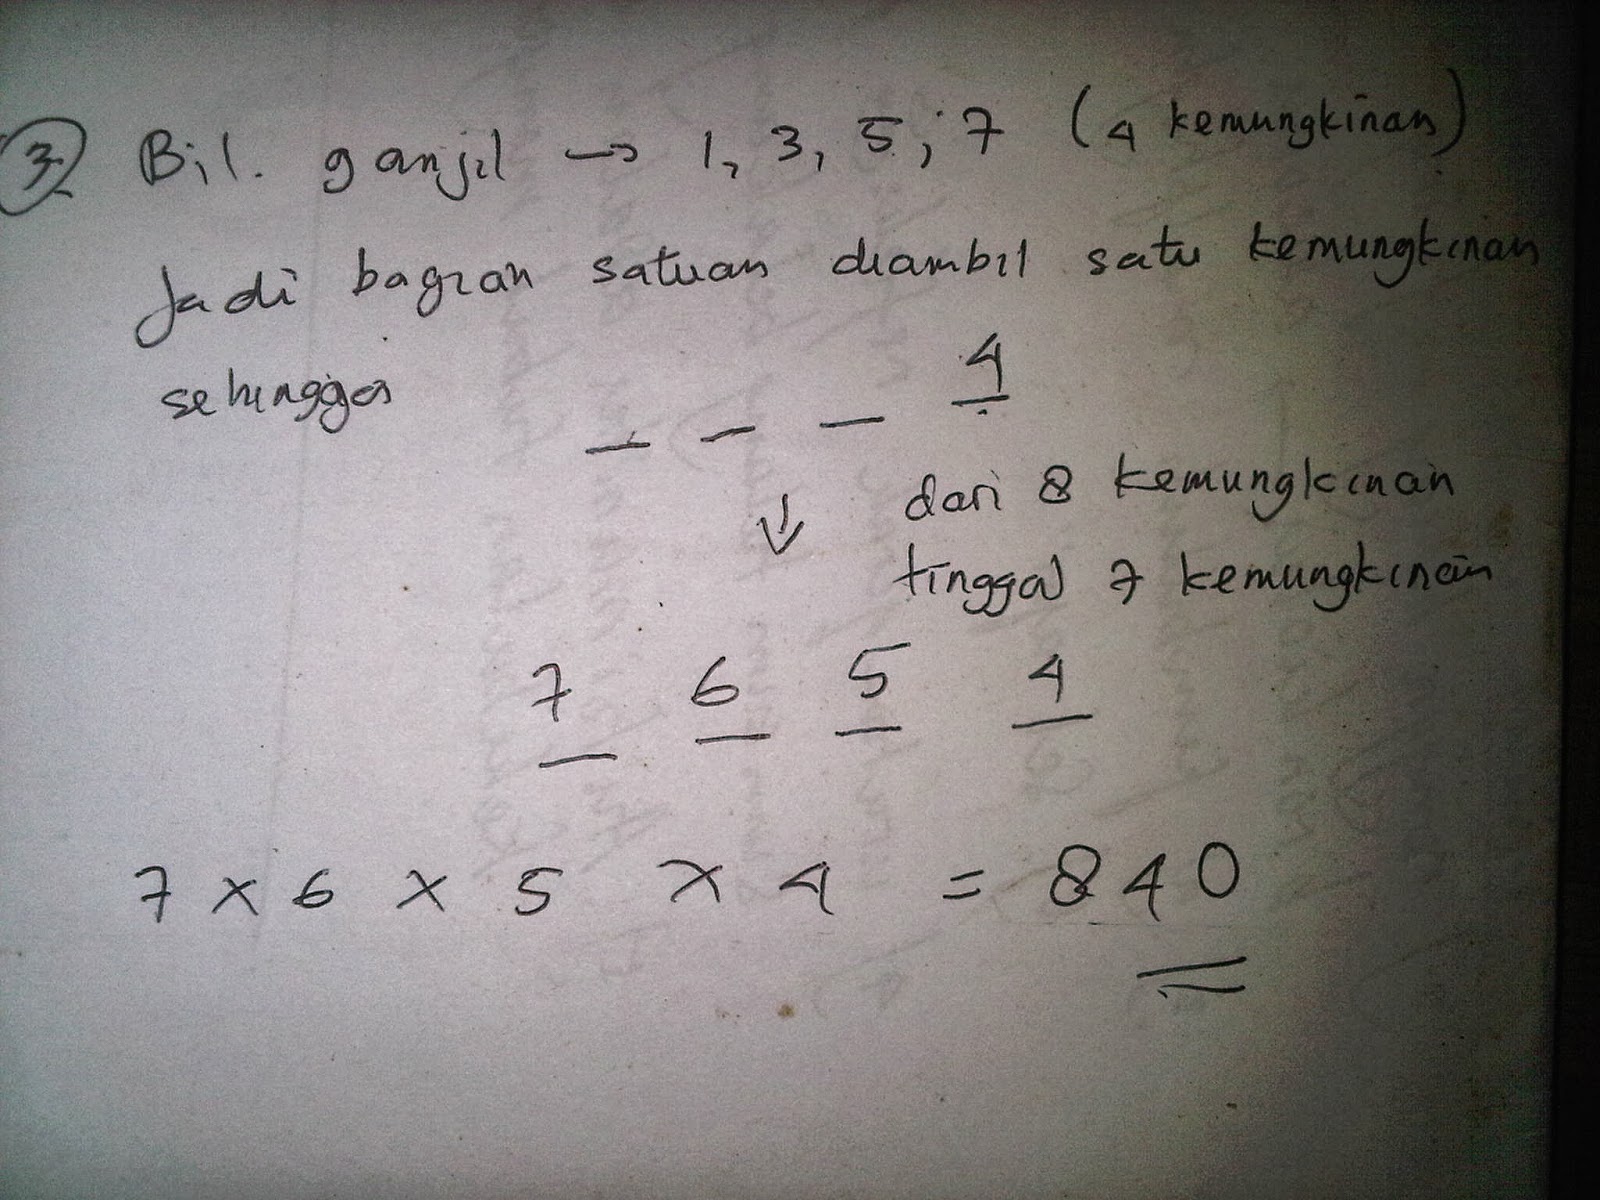 3 Bil. ganjil → 1, 3, 5, 7 (4 kemungkinan)
Jadi bagian satuan diambil satu kemungkinan
sehingga _ _ _ 4
↓ dari 8 kemungkinan
tinggal 7 kemungkinan
7 6 5 4
7 x 6 x 5 x 4 = 840